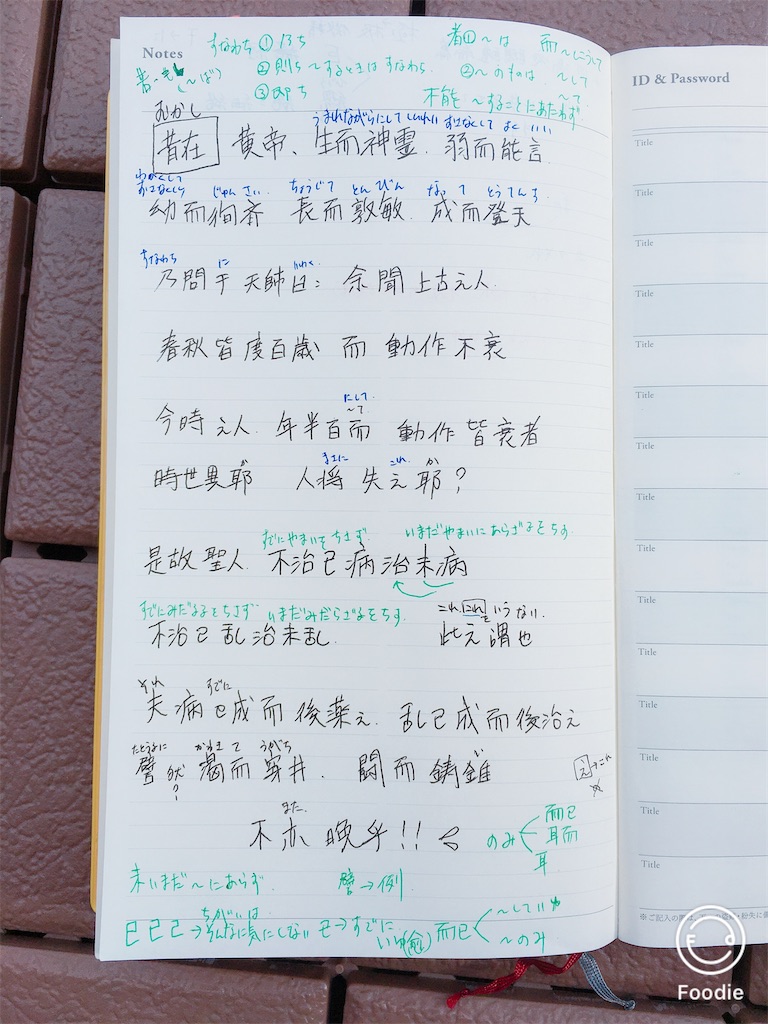 Notes
すなわち ① 乃ち
者① 〜は 而 〜にして
② 則ち 〜するときはすなわち
② 〜のものは 〜して
③ 即ち
不能 〜することにあたわず
むかし うまれながらにして
昔在 黄帝、生而神霊、弱而能言
じゅんさい ちょうじて とんびん なって とうてんす
幼而徇斉 長而敦敏 成而登天
すなわち に いわく
乃問于天師曰: 余聞上古之人
春秋皆度百歳 而 動作不衰
にして
〜て
今時之人 年半百而 動作皆衰者
まさに これ か
時世異耶 人将失之耶?
すでにやまいをちさず いまだやまいにあらざるをちす
是故聖人 不治已病治未病
すでにみだるるをちさず いまだみだらざるをちす これ これを いう なり
不治已乱治未乱 此之謂也
それ すでに
夫病已成而後薬之 乱已成而後治之
たとうるに かわきて うがち
譬 猶 渇而穿井 闘而鋳錐
?
之→これ
また
不亦晩乎!!
のみ 而已 耳而 耳
未 いまだ〜にあらず 譬→例
ちがいは
巳已己→そんなに気にしない 已→すでに
而已 〜のみ
ID & Password
Title
Title
Title
Title
Title
Title
Title
Title
Title
Title
Title
Title
Title
Title
Title
Foodie